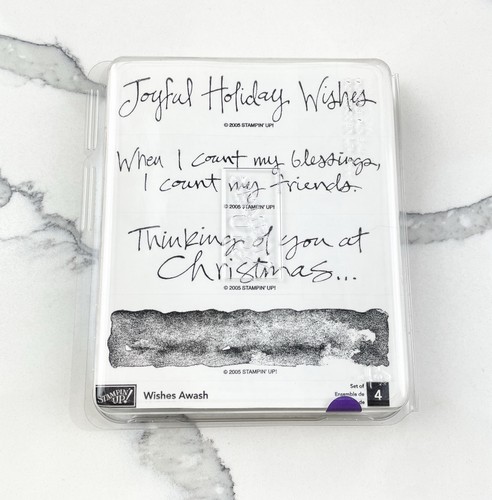 Joyful Holiday Wishes
© 2005 STAMPIN' UP!
When I count my blessings,
I count my friends.
© 2005 STAMPIN' UP!
Thinking of you at
Christmas...
© 2005 STAMPIN' UP!
© 2005 STAMPIN' UP!
STAMPIN' UP!
Wishes Awash
Set of
Ensemble de
de
4